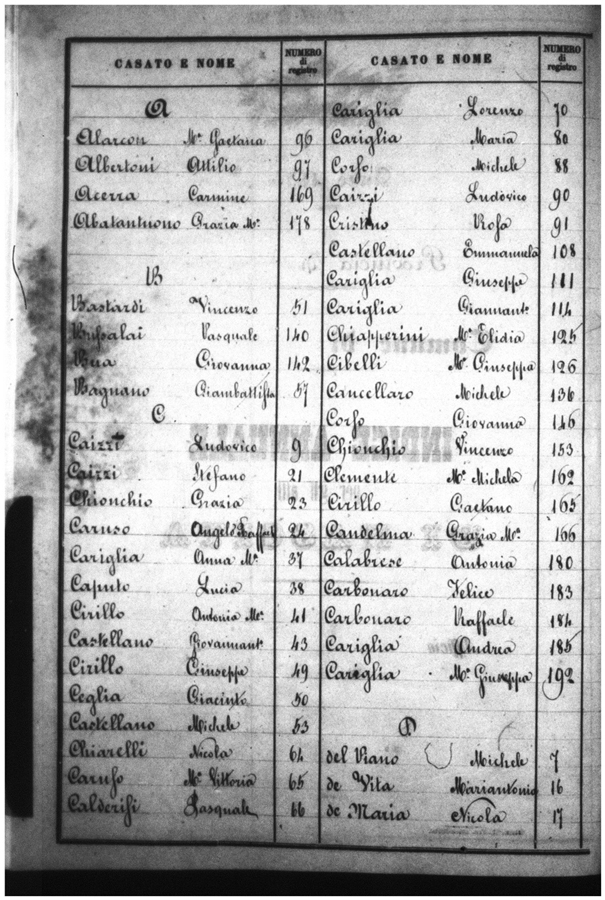 CASATO E NOME NUMERO di registro
A
Alarcon Mª Gaetana 96
Albertoni Attilio 97
Acerra Carmine 169
Abatantuono Grazia Mª 178
B
Bastardi Vincenzo 51
Bufalai Pasquale 140
Bua Giovanna 142
Bagnano Giambattista 57
C
Caizzi Ludovico 9
Caizzi Stefano 21
Chionchio Grazia 23
Caruso Angelo Raffaele 24
Cariglia Anna Mª 37
Caputo Lucia 38
Cirillo Antonia Mª 41
Castellano Giovannant 43
Cirillo Giuseppe 49
Ceglia Giacinto 50
Castellano Michele 53
Chiarelli Nicola 64
Caruso Mª Vittoria 65
Calderisi Pasquale 66
CASATO E NOME NUMERO di registro
Cariglia Lorenzo 70
Cariglia Maria 80
Corso Michele 88
Caizzi Ludovico 90
Cristino Rosa 91
Castellano Emmanuela 108
Cariglia Giuseppa 111
Cariglia Giannant 114
Chiapperini Mª Elidia 125
Cibelli Mª Giuseppa 126
Cancellaro Michele 136
Corso Giovanna 146
Chionchio Vincenzo 153
Clemente Mª Michela 162
Cirillo Gaetano 165
Candelma Grazia Mª 166
Calabrese Antonia 180
Carbonaro Felice 183
Carbonaro Raffaele 184
Cariglia Andrea 185
Cariglia Mª Giuseppa 192
D
del Viano Michele 7
de Vita Mariantonia 16
de Maria Nicola 17